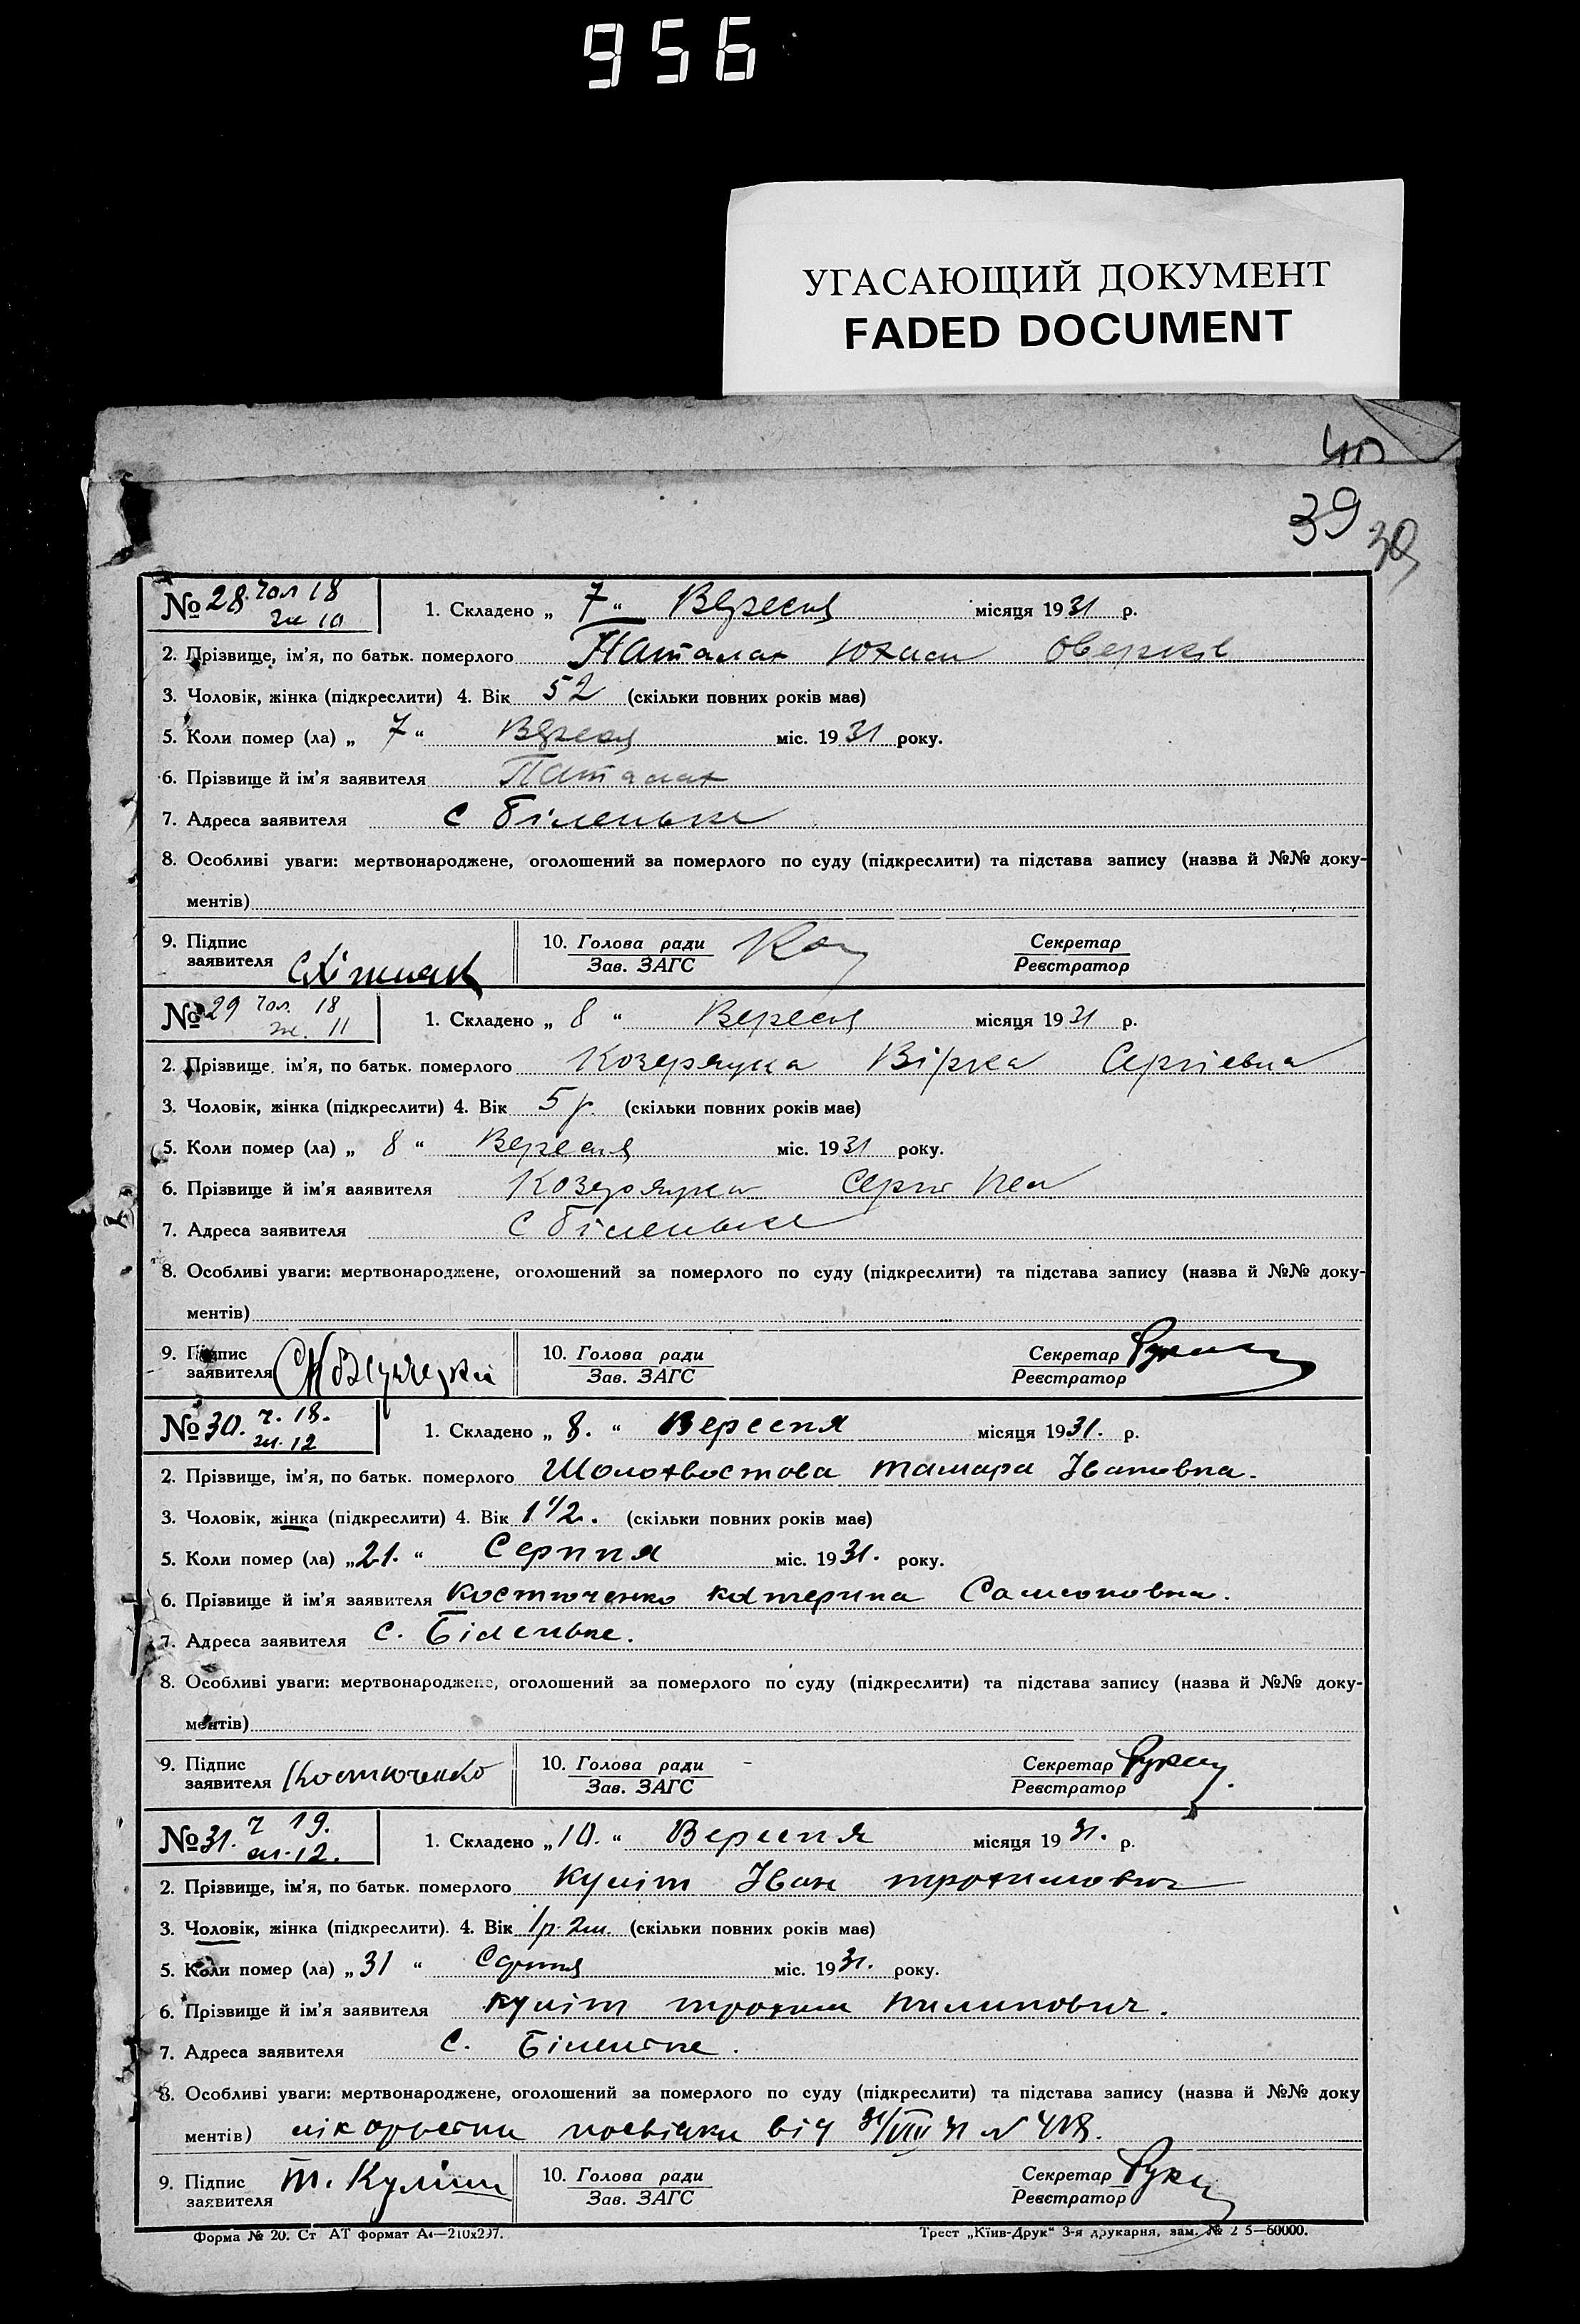 956
УГАСАЮЩИЙ ДОКУМЕНТ
FADED DOCUMENT
40
39 39
№ 28. Чол 18
Жи 10
1. Складено „ 7 “ Вересня місяця 1931 р.
2. Прізвище, ім’я, по батьк. померлого Паталах Оверков
3. Чоловік, жінка (підкреслити) 4. Вік 52 (скільки повних років має)
5. Коли помер (ла) „ 7 “ Вересня міс. 1931 року.
6. Прізвище й ім’я заявителя Паталах
7. Адреса заявителя с Біленьке
8. Особливі уваги: мертвонароджене, оголошений за померлого по суду (підкреслити) та підстава запису (назва й №№ доку-
ментів)
9. Підпис заявителя
10. Голова ради
Зав. ЗАГС
Секретар
Реєстратор
№ 29 Чол. 18
Ж. 11
1. Складено „ 8 “ Вересня місяця 1931 р.
2. Прізвище, ім’я, по батьк. померлого Вірка Сергієвна
3. Чоловік, жінка (підкреслити) 4. Вік 5 р. (скільки повних років має)
5. Коли помер (ла) „ 8 “ Вересня міс. 1931 року.
6. Прізвище й ім’я заявителя
7. Адреса заявителя с Біленьке
8. Особливі уваги: мертвонароджене, оголошений за померлого по суду (підкреслити) та підстава запису (назва й №№ доку-
ментів)
9. Підпис заявителя
10. Голова ради
Зав. ЗАГС
Секретар
Реєстратор
№ 30. ч. 18.
ж. 12
1. Складено „ 8. “ Вересня місяця 1931. р.
2. Прізвище, ім’я, по батьк. померлого Шолохвостова Тамара Івановна.
3. Чоловік, жінка (підкреслити) 4. Вік 1 1/2. (скільки повних років має)
5. Коли помер (ла) „ 21. “ Серпня міс. 1931. року.
6. Прізвище й ім’я заявителя Костюченко Катерина Самсоновна.
7. Адреса заявителя с. Біленьке.
8. Особливі уваги: мертвонароджене, оголошений за померлого по суду (підкреслити) та підстава запису (назва й №№ доку-
ментів)
9. Підпис заявителя Костюченко
10. Голова ради
Зав. ЗАГС
Секретар
Реєстратор
№ 31. ч 19.
ж. 12.
1. Складено „ 10. “ Вересня місяця 1931. р.
2. Прізвище, ім’я, по батьк. померлого Куліш Іван Трохимович
3. Чоловік, жінка (підкреслити). 4. Вік 1 р. 2 м. (скільки повних років має)
5. Коли помер (ла) „ 31 “ Серпня міс. 1931. року.
6. Прізвище й ім’я заявителя Куліш Трохим Пилипович.
7. Адреса заявителя с. Біленьке.
8. Особливі уваги: мертвонароджене, оголошений за померлого по суду (підкреслити) та підстава запису (назва й №№ доку
ментів) посвідки від 31/VIII 31 N
9. Підпис заявителя Т. Куліш
10. Голова ради
Зав. ЗАГС
Секретар
Реєстратор
Форма № 20. Ст АТ формат А4—210х297.
Трест „Київ-Друк“ 3-я друкарня, зам. № 2 5—60000.